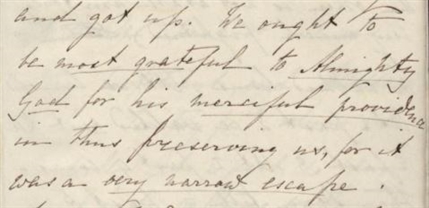 and got up. We ought to
be most grateful to Almighty
God for his merciful providence
in thus preserving us, for it
was a very narrow escape.